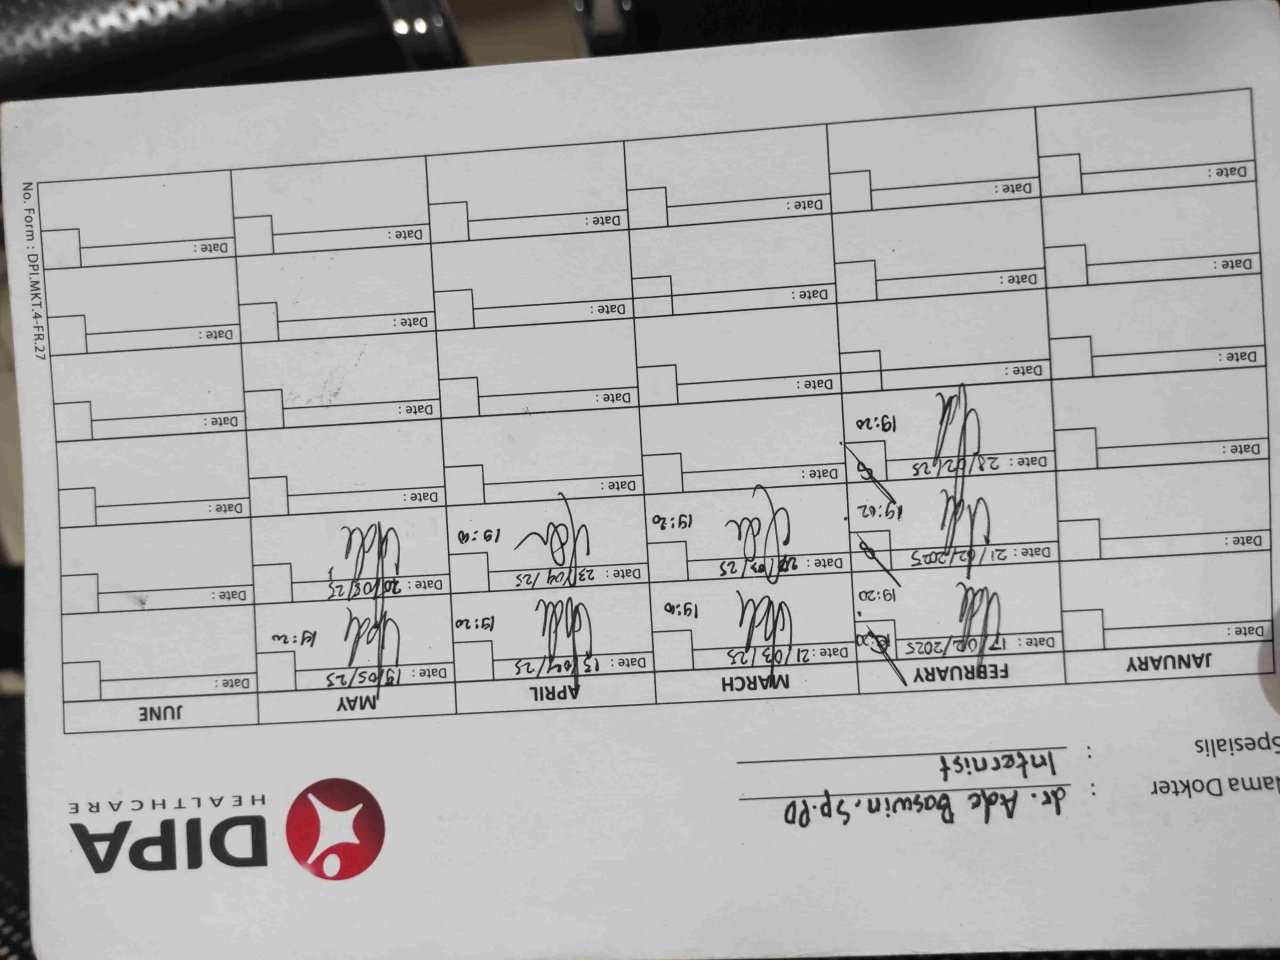 DIPA
HEALTHCARE
Nama Dokter : dr. Ade Baswin. Sp.PD
Spesialis : Internist
JANUARY FEBRUARY MARCH APRIL MAY JUNE
Date : Date : 17/02/2025 Date : 21/03/25 Date : 15/04/25 Date : 19/05/25 Date :
19:20 19:10 19:20 19:20
Date : Date : 21/02/2025 Date : /03/25 Date : 23/04/25 Date : 20/05/25 Date :
19:02 19:20 19:10
Date : Date : 28/02/25 Date : Date : Date : Date :
19:20
Date : Date : Date : Date : Date : Date :
Date : Date : Date : Date : Date : Date :
Date : Date : Date : Date : Date : Date :
No. Form : DPI.MKT.4-FR.27